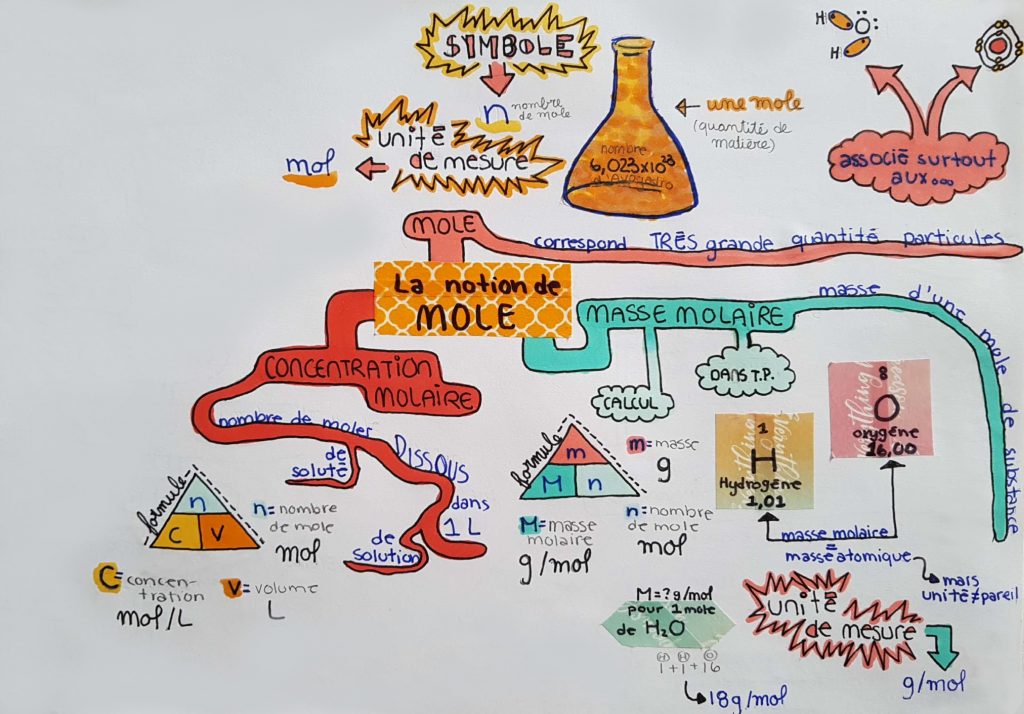 SYMBOLE
n
nombre
de mole
unité
de mesure
mol
nombre
6,023x10²³
d'Avogadro
une mole
(quantité de
matière)
H
O
H
associé surtout
aux...
MOLE
correspond TRÈS grande quantité particules
La notion de
MOLE
MASSE MOLAIRE
masse d'une mole de substance
CALCUL
DANS T.P.
CONCENTRATION
MOLAIRE
nombre de moles
de
soluté
DISSOUS
dans
1 L
de
solution
formule
n
C V
n=nombre
de mole
mol
C=concen-
tration
mol/L
V=volume
L
formule
m
M n
m=masse
g
M=masse
molaire
g/mol
n=nombre
de mole
mol
1
H
Hydrogène
1,01
8
O
oxygène
16,00
masse molaire
=
masse atomique
mais
unité≠pareil
M=?g/mol
pour 1 mole
de H₂O
H H O
1+1+16
18g/mol
unité
de mesure
g/mol